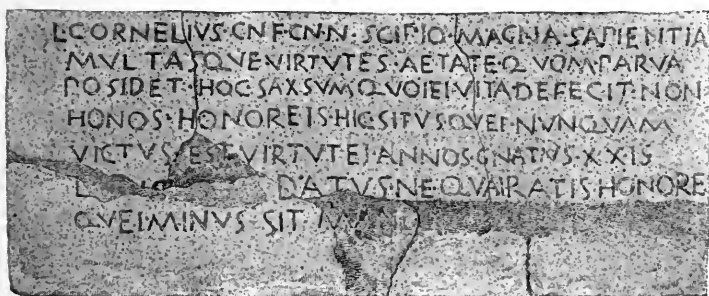 L·CORNELIVS·CN·F·CN·N·SCIPIO·MAGNA·SAPIENTIA
MVLTASQVE·VIRTVTES·AETATE·QVOM·PARVA
POSIDET·HOC·SAXSVM·QVOIEI·VITA·DEFECIT·NON
HONOS·HONORE·IS·HIC·SITVS·QVEI·NVNQVAM
VICTVS·EST·VIRTVTEI·ANNOS·GNATVS·XX·IS
DATVS·NE·QVAIRATIS·HONORE
QVEI·MINVS·SIT